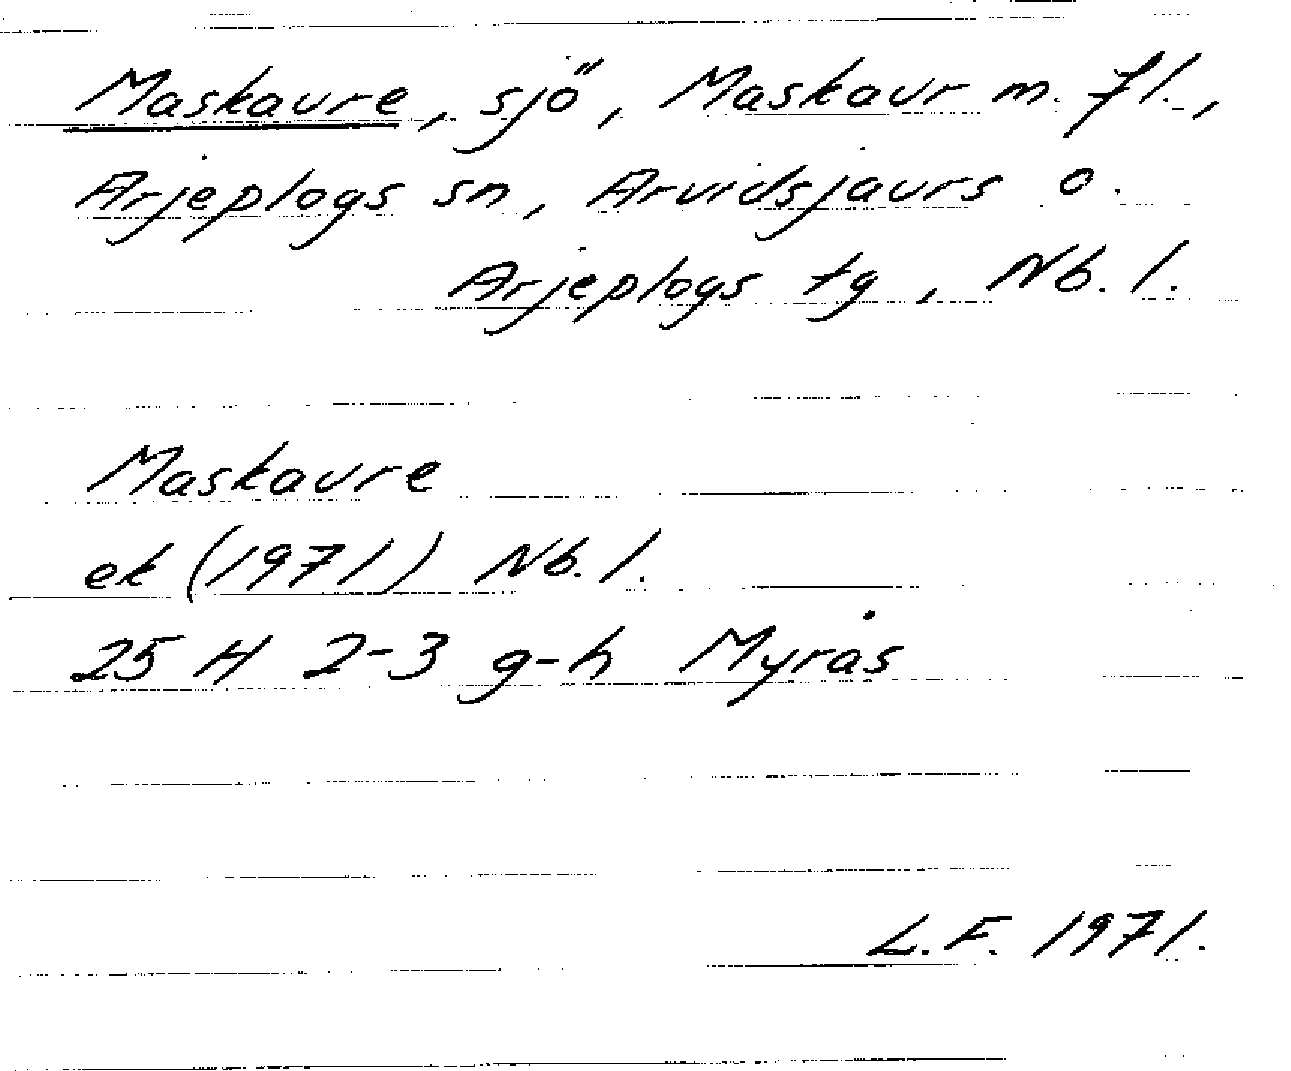 Maskaure, sjö, Maskaur m. fl.,
Arjeplogs sn, Arvidsjaurs o.
Arjeplogs tg, Nb. l.
Maskaure
ek (1971) Nb. l.
25 H 2-3 g-h Myrås
L.F. 1971.